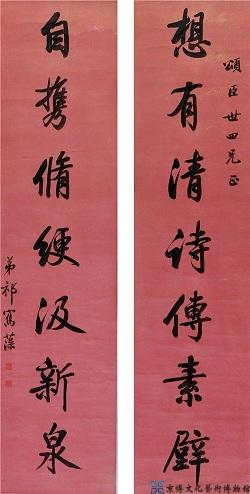 頌臣世四兄正
想有清诗傳素壁
自攜脩綆汲新泉
弟祁寯藻
京博文化藝術博物館